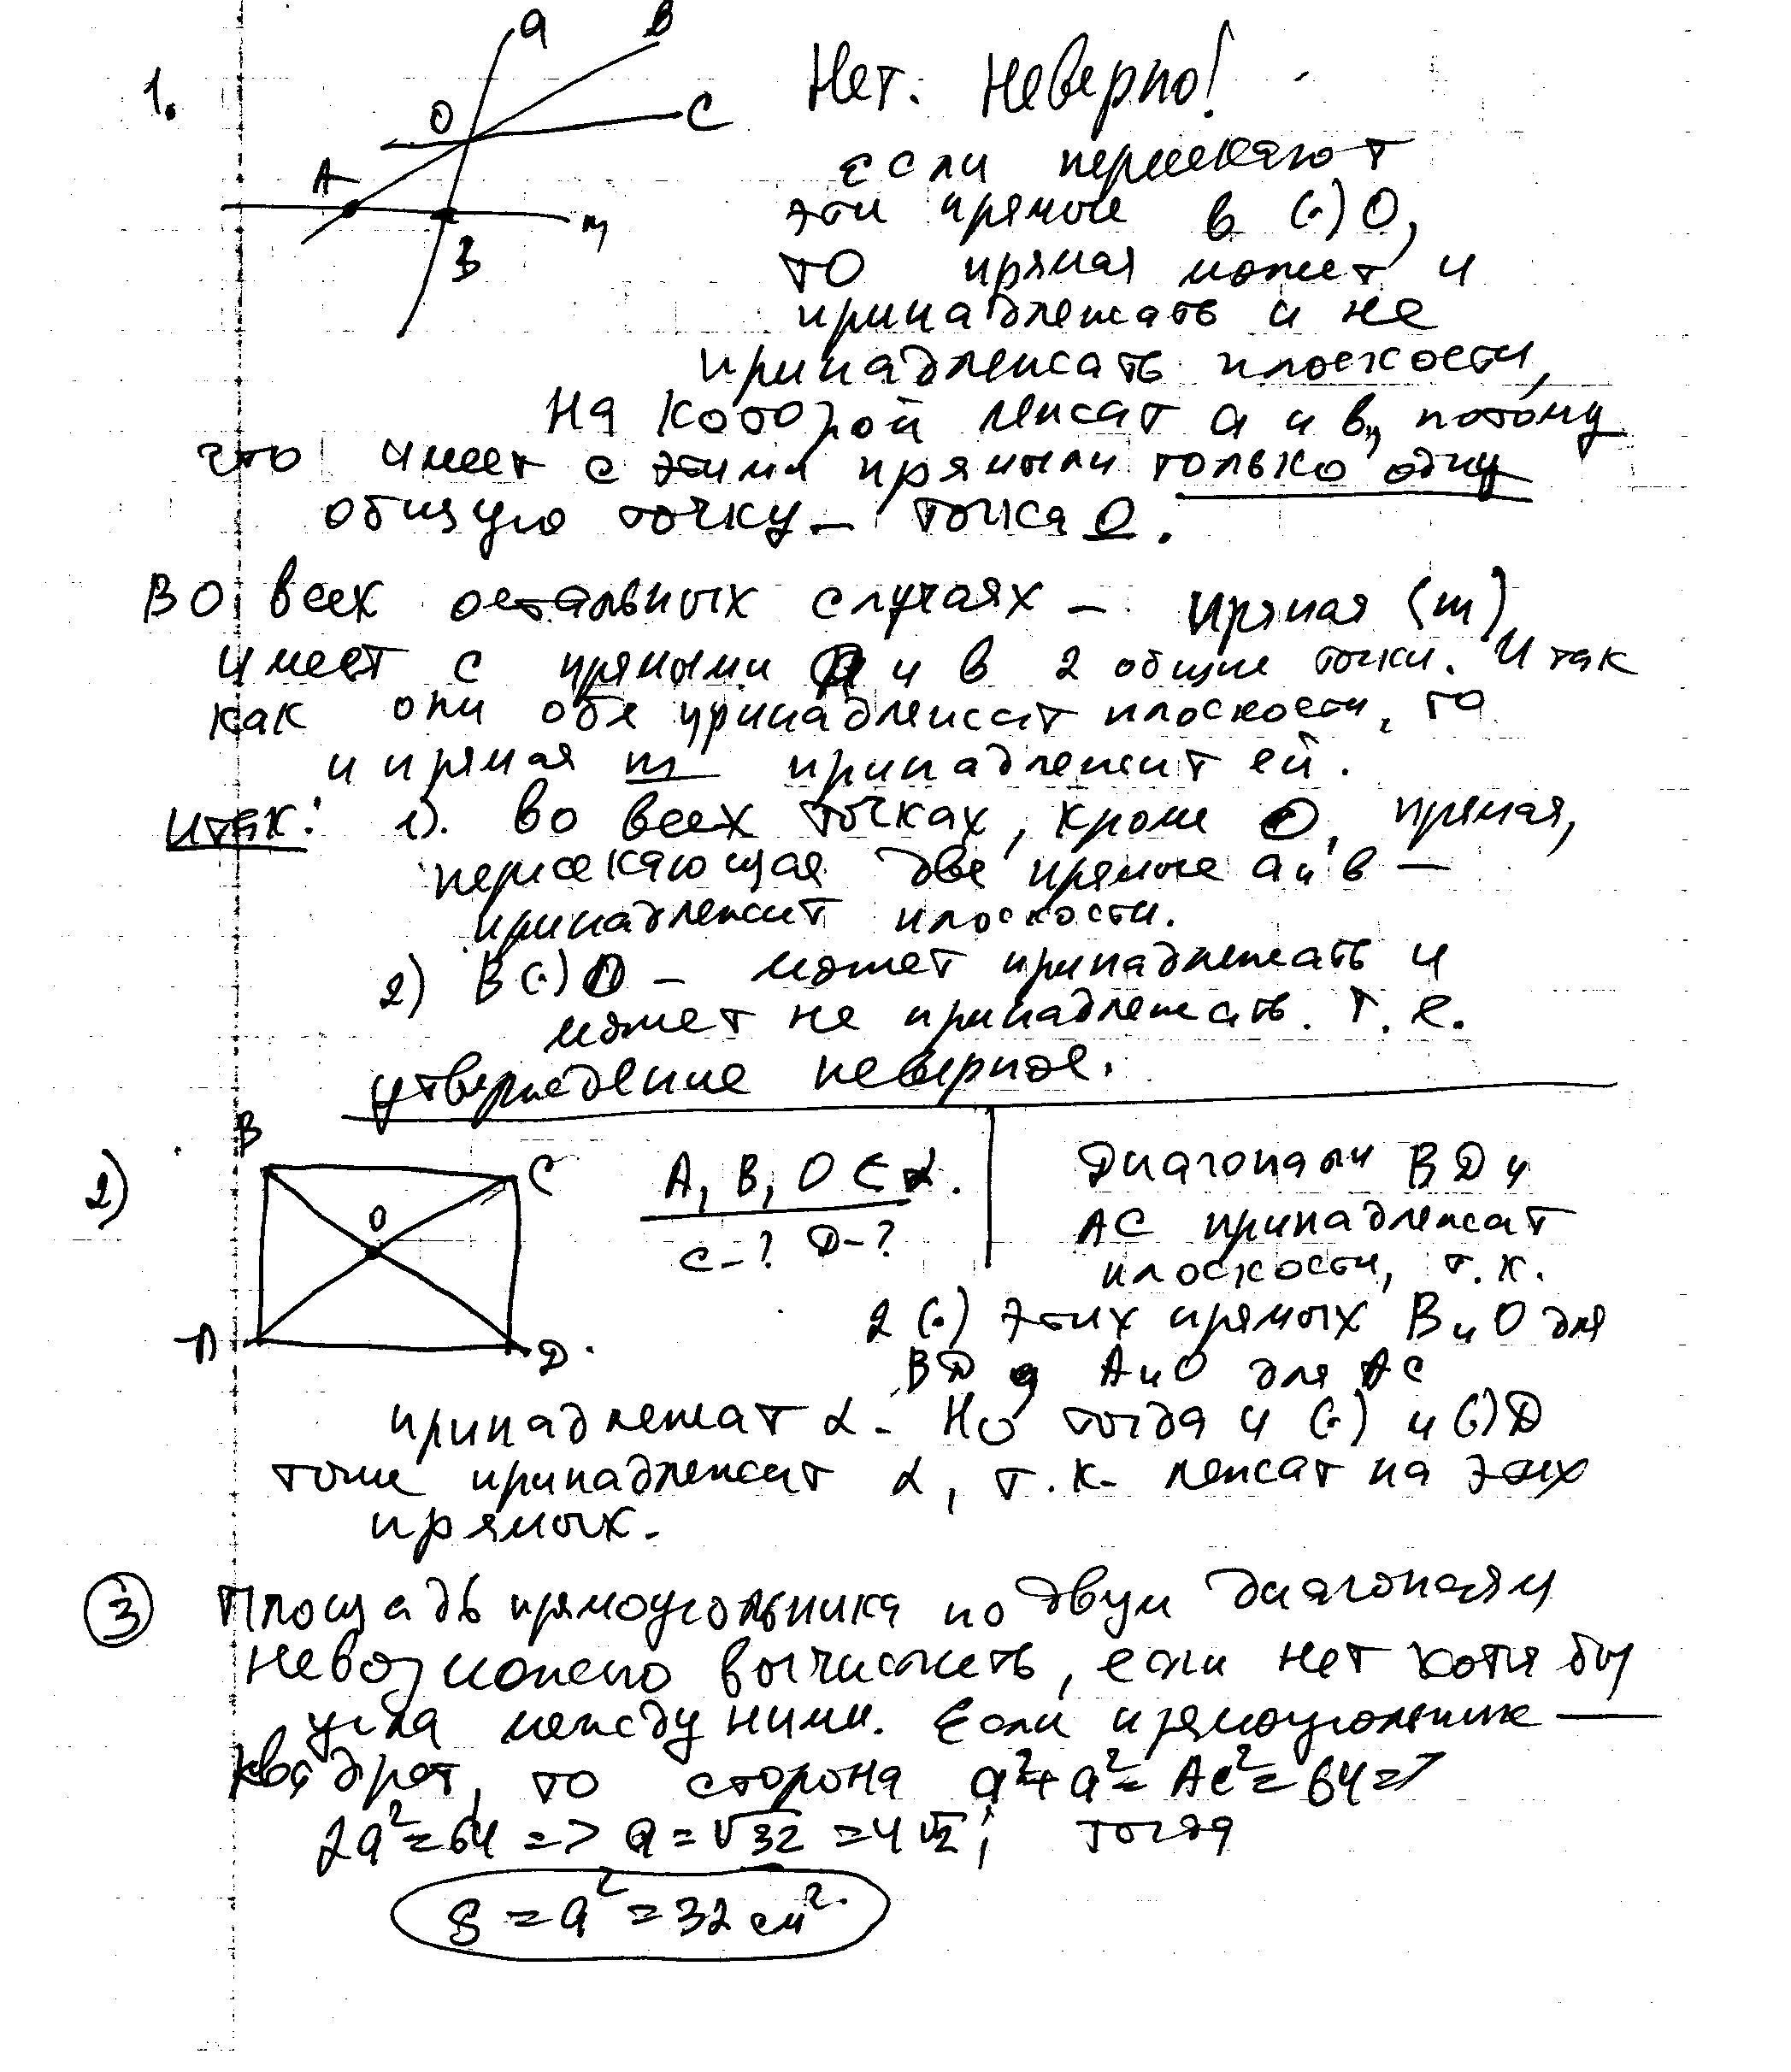 1.
a
в
O
C
A
B
m
Нет. Неверно!
если пересекают
эти прямые в (·) О,
то прямая может и
принадлежать и не
принадлежать плоскости,
на которой лежат а и в, потому
что имеет с этими прямыми только одну
общую точку – точка О.
Во всех остальных случаях – прямая (m)
имеет с прямыми а и в 2 общие точки. И так
как они обе принадлежат плоскости, то
и прямая m принадлежит ей.
Итак: 1). во всех точках, кроме О, прямая,
пересекающая две прямые а и в –
принадлежит плоскости.
2) В (·) О – может принадлежать и
может не принадлежать. Т. е.
утверждение неверное.
2)
B
C
O
A
D.
A, B, O ⊂ α.
C – ? D – ?
Диагонали BD и
AC принадлежат
плоскости, т. к.
2 (·) этих прямых B и O для
BD и A и O для AC
принадлежат α. Но тогда и (·) и (·) D
тоже принадлежат α, т. к. лежат на этих
прямых.
3 Площадь прямоугольника по двум диагоналям
невозможно вычислить, если нет хотя бы
угла между ними. Если прямоугольник –
квадрат, то сторона a²+a²=AC²=64=>
2a²=64 => a=√32=4√2; тогда
S=a²=32 см².